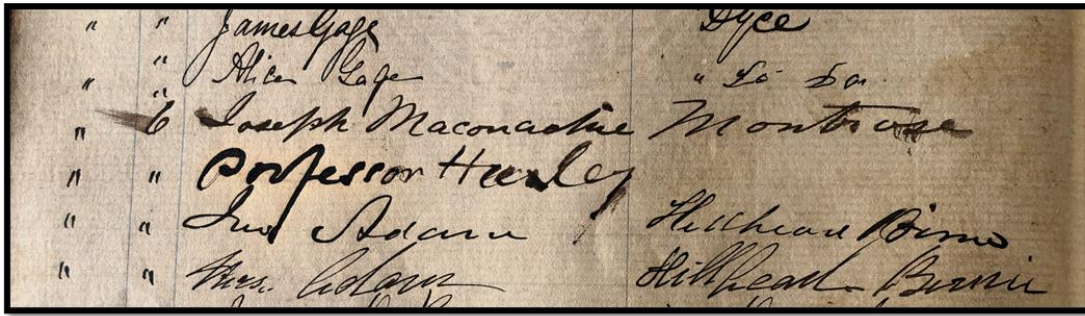 " " James Gage Dyce
" " Alice Gage " Do Do
" 6 Joseph Maconachie Montrose
" " Professor Huxley
" " Jno Adam Hillhead Birnie
" " Mrs. Adam Hillhead Birnie